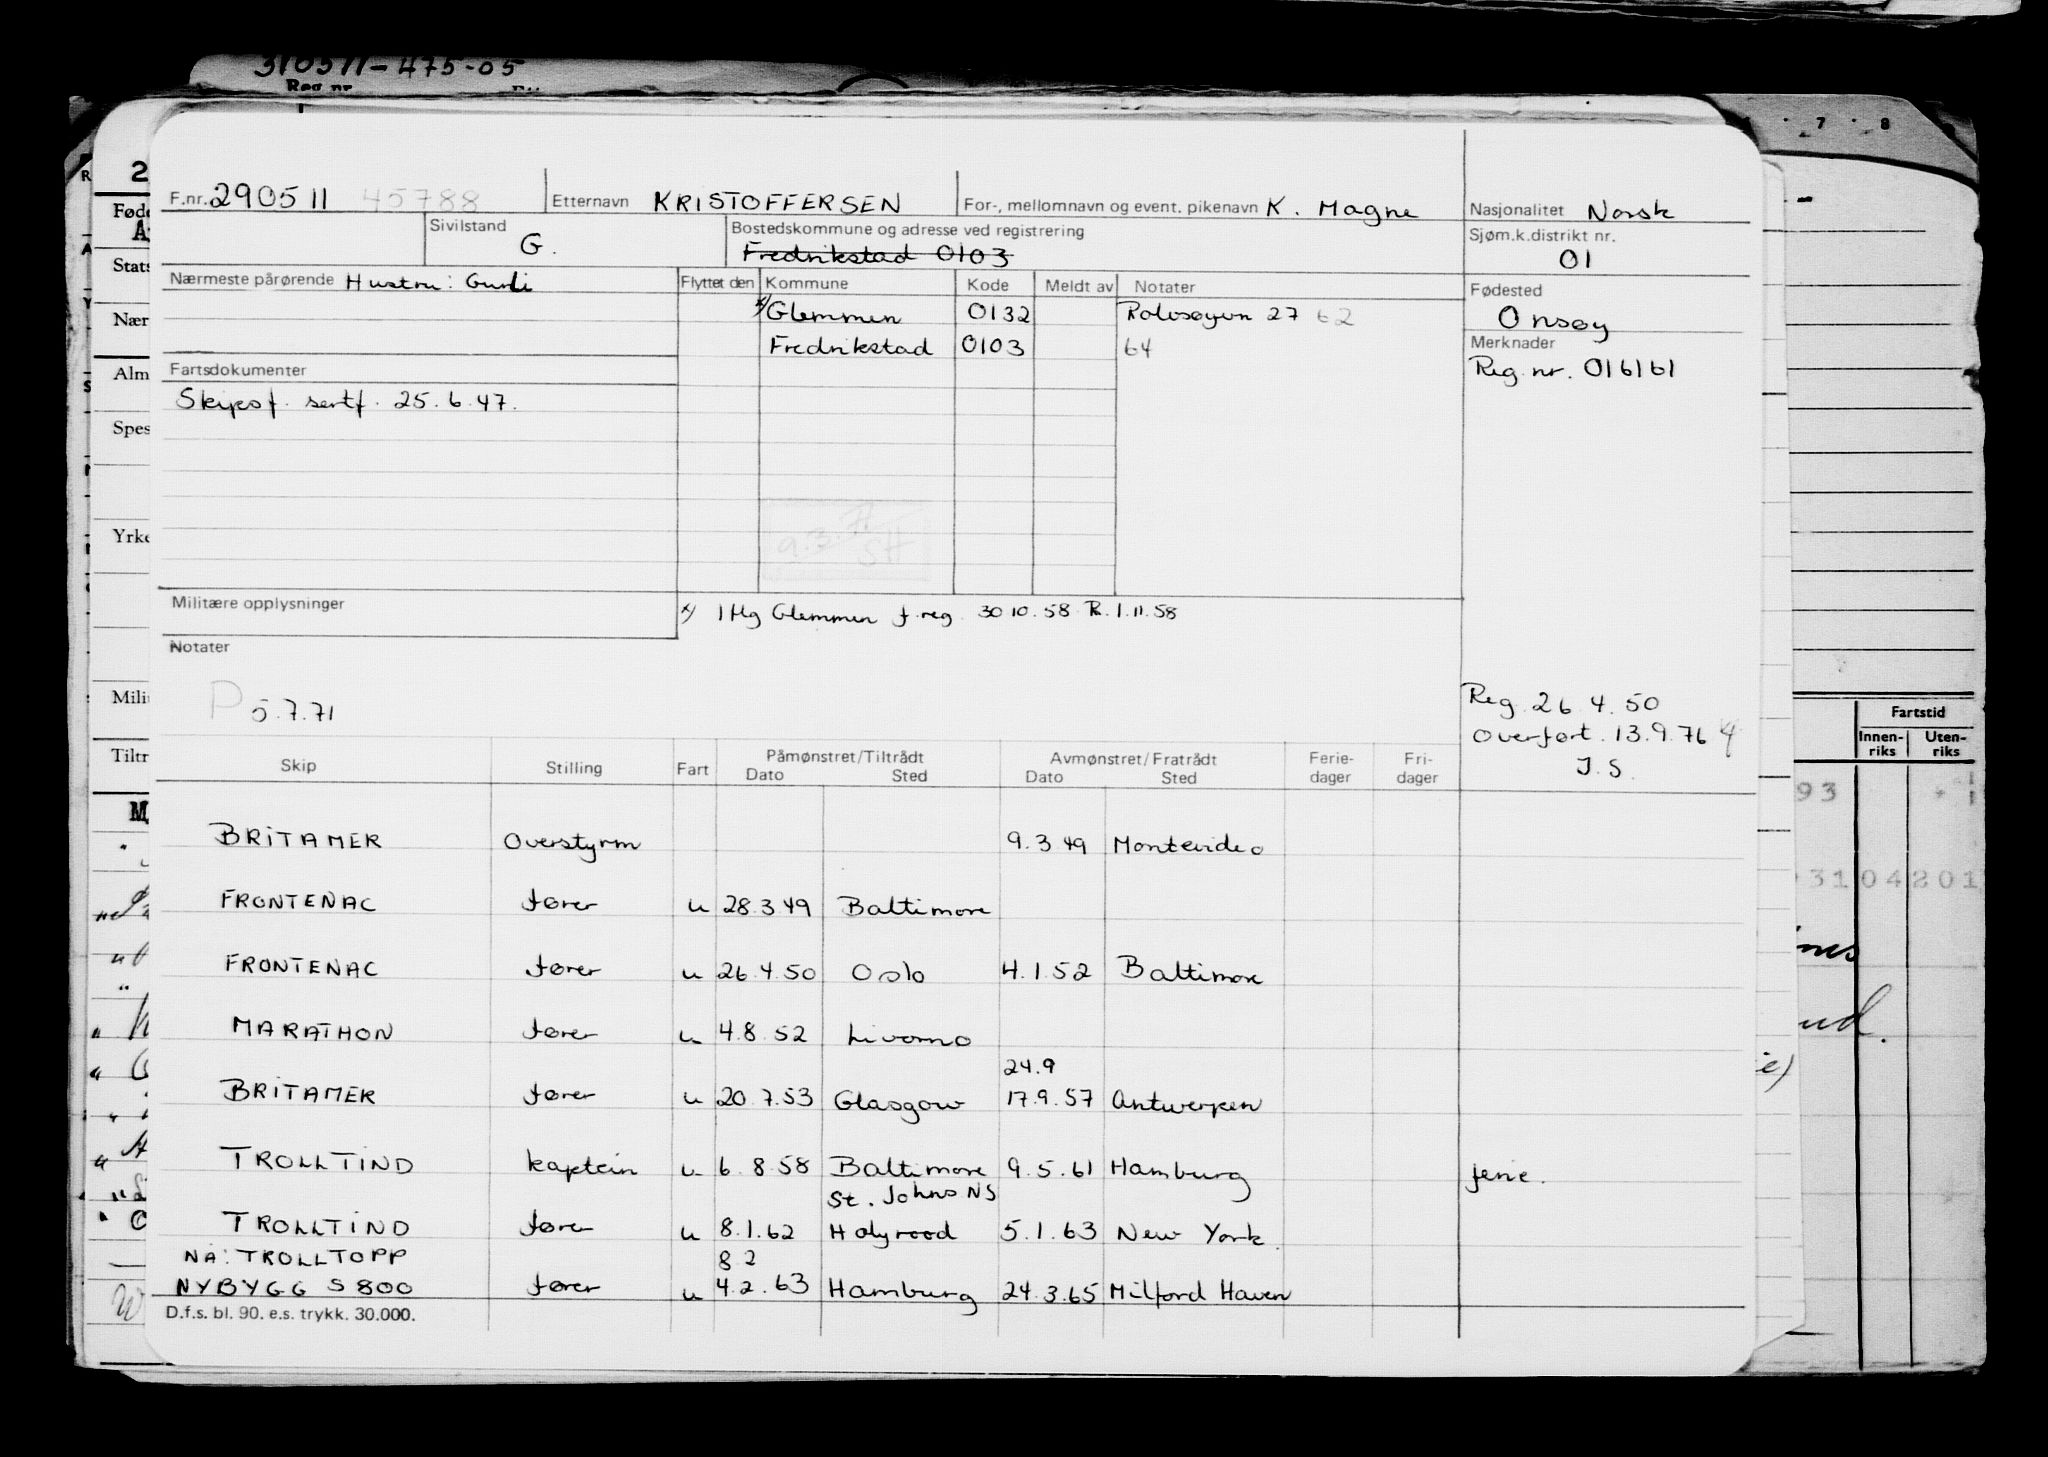 310511-475-05
Reg.nr.
7 8
F.nr. 290511 45788 Etternavn KRISTOFFERSEN For-, mellomnavn og event. pikenavn K. Magne Nasjonalitet Norsk
Sivilstand G. Bostedskommune og adresse ved registrering Fredrikstad 0103 Sjøm.k.distrikt nr. 01
Nærmeste pårørende Hustru: Gurli Flyttet den Kommune Kode Meldt av Notater Fødested Onsøy
x) Glemmen 0132 Rolvsøyvn 27 62
Fredrikstad 0103 64
Merknader
Reg. nr. 016161
Fartsdokumenter
Skipsf. sertf. 25.6.47.
9.3.71
SH
Militære opplysninger
x) Glemmen f. reg. 30 10.58 R. 1.11.58
Notater
P 5.7.71
Reg. 26.4.50
Overført. 13.9.76
J.S.
Skip Stilling Fart Påmønstret/Tiltrådt Avmønstret/Fratrådt Ferie- Fri-
Dato Sted Dato Sted dager dager
BRITAMER Overstyrm 9.3 49 Montevideo
FRONTENAC fører u 28.3 49 Baltimore
FRONTENAC fører u 26.4.50 Oslo 4.1.52 Baltimore
MARATHON fører u 4.8.52 Livorno
24.9
BRITAMER fører u 20.7.53 Glasgow 17.9.57 Antwerpen
TROLLTIND kaptein u 6.8.58 Baltimore 9.5.61 Hamburg ferie.
St. Johns NS
TROLLTIND fører u 8.1.62 Holyrood 5.1.63 New York.
NÅ: TROLLTOPP 8 2
NYBYGG S 800 fører u 4.2.63 Hamburg 24.3.65 Milford Haven
D.f.s. bl. 90. e.s. trykk. 30.000.
Fartstid
Innen-riks Uten-riks
93
31 04 201